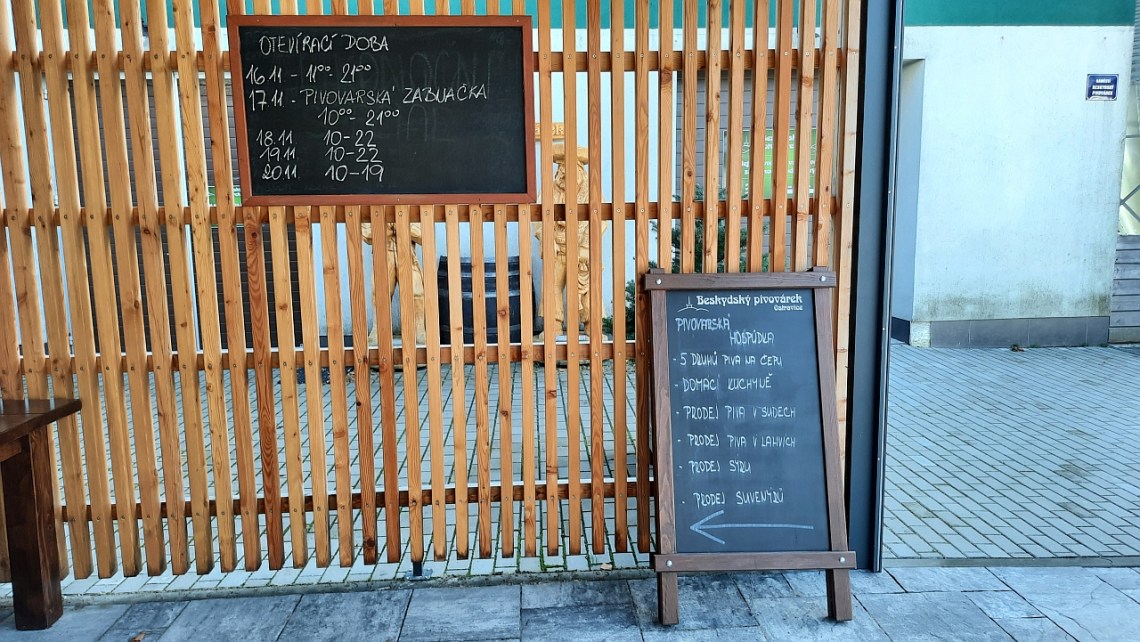 OTEVÍRACÍ DOBA
16.11 - 11⁰⁰- 21⁰⁰
17.11 - PIVOVARSKÁ ZABIJAČKA
10⁰⁰ - 21⁰⁰
18.11 10-22
19.11 10-22
20.11 10-19
Beskydský pivovárek
Ostravice
PIVOVARSKÁ
HOSPŮDKA
- 5 DRUHŮ PIVA NA ČEPU
- DOMÁCÍ KUCHYNĚ
- PRODEJ PIVA V SUDECH
- PRODEJ PIVA V LAHVÍCH
- PRODEJ SÝRU
- PRODEJ SUVENÝRŮ